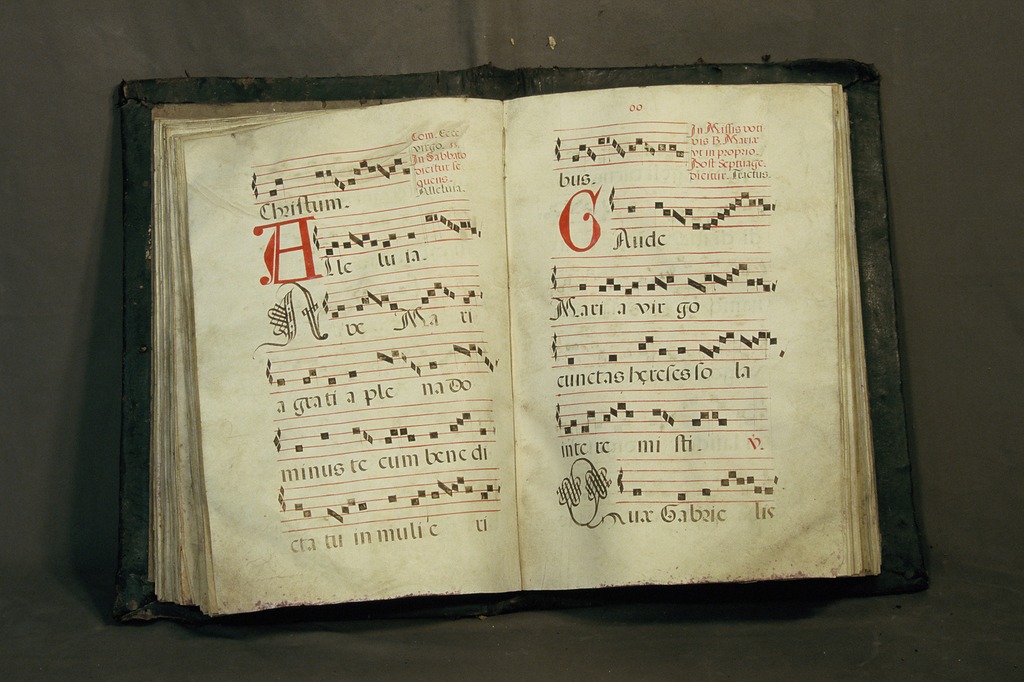 Com. Ecce
virgo. 53.
In Sabbato
dicitur se
quens.
Alleluia.
Christum.
Alle lu ia.
Ave Ma ri
a grati a ple na Do
minus te cum bene di
cta tu in muli e ri
00
In Missis voti
vis B. Mariæ
vt in proprio.
Post Septuage.
dicitur. Tractus.
bus.
GAude
Mari a vir go
cunctas hęreses so la
inte re mi sti. V.
Quæ Gabrie lis